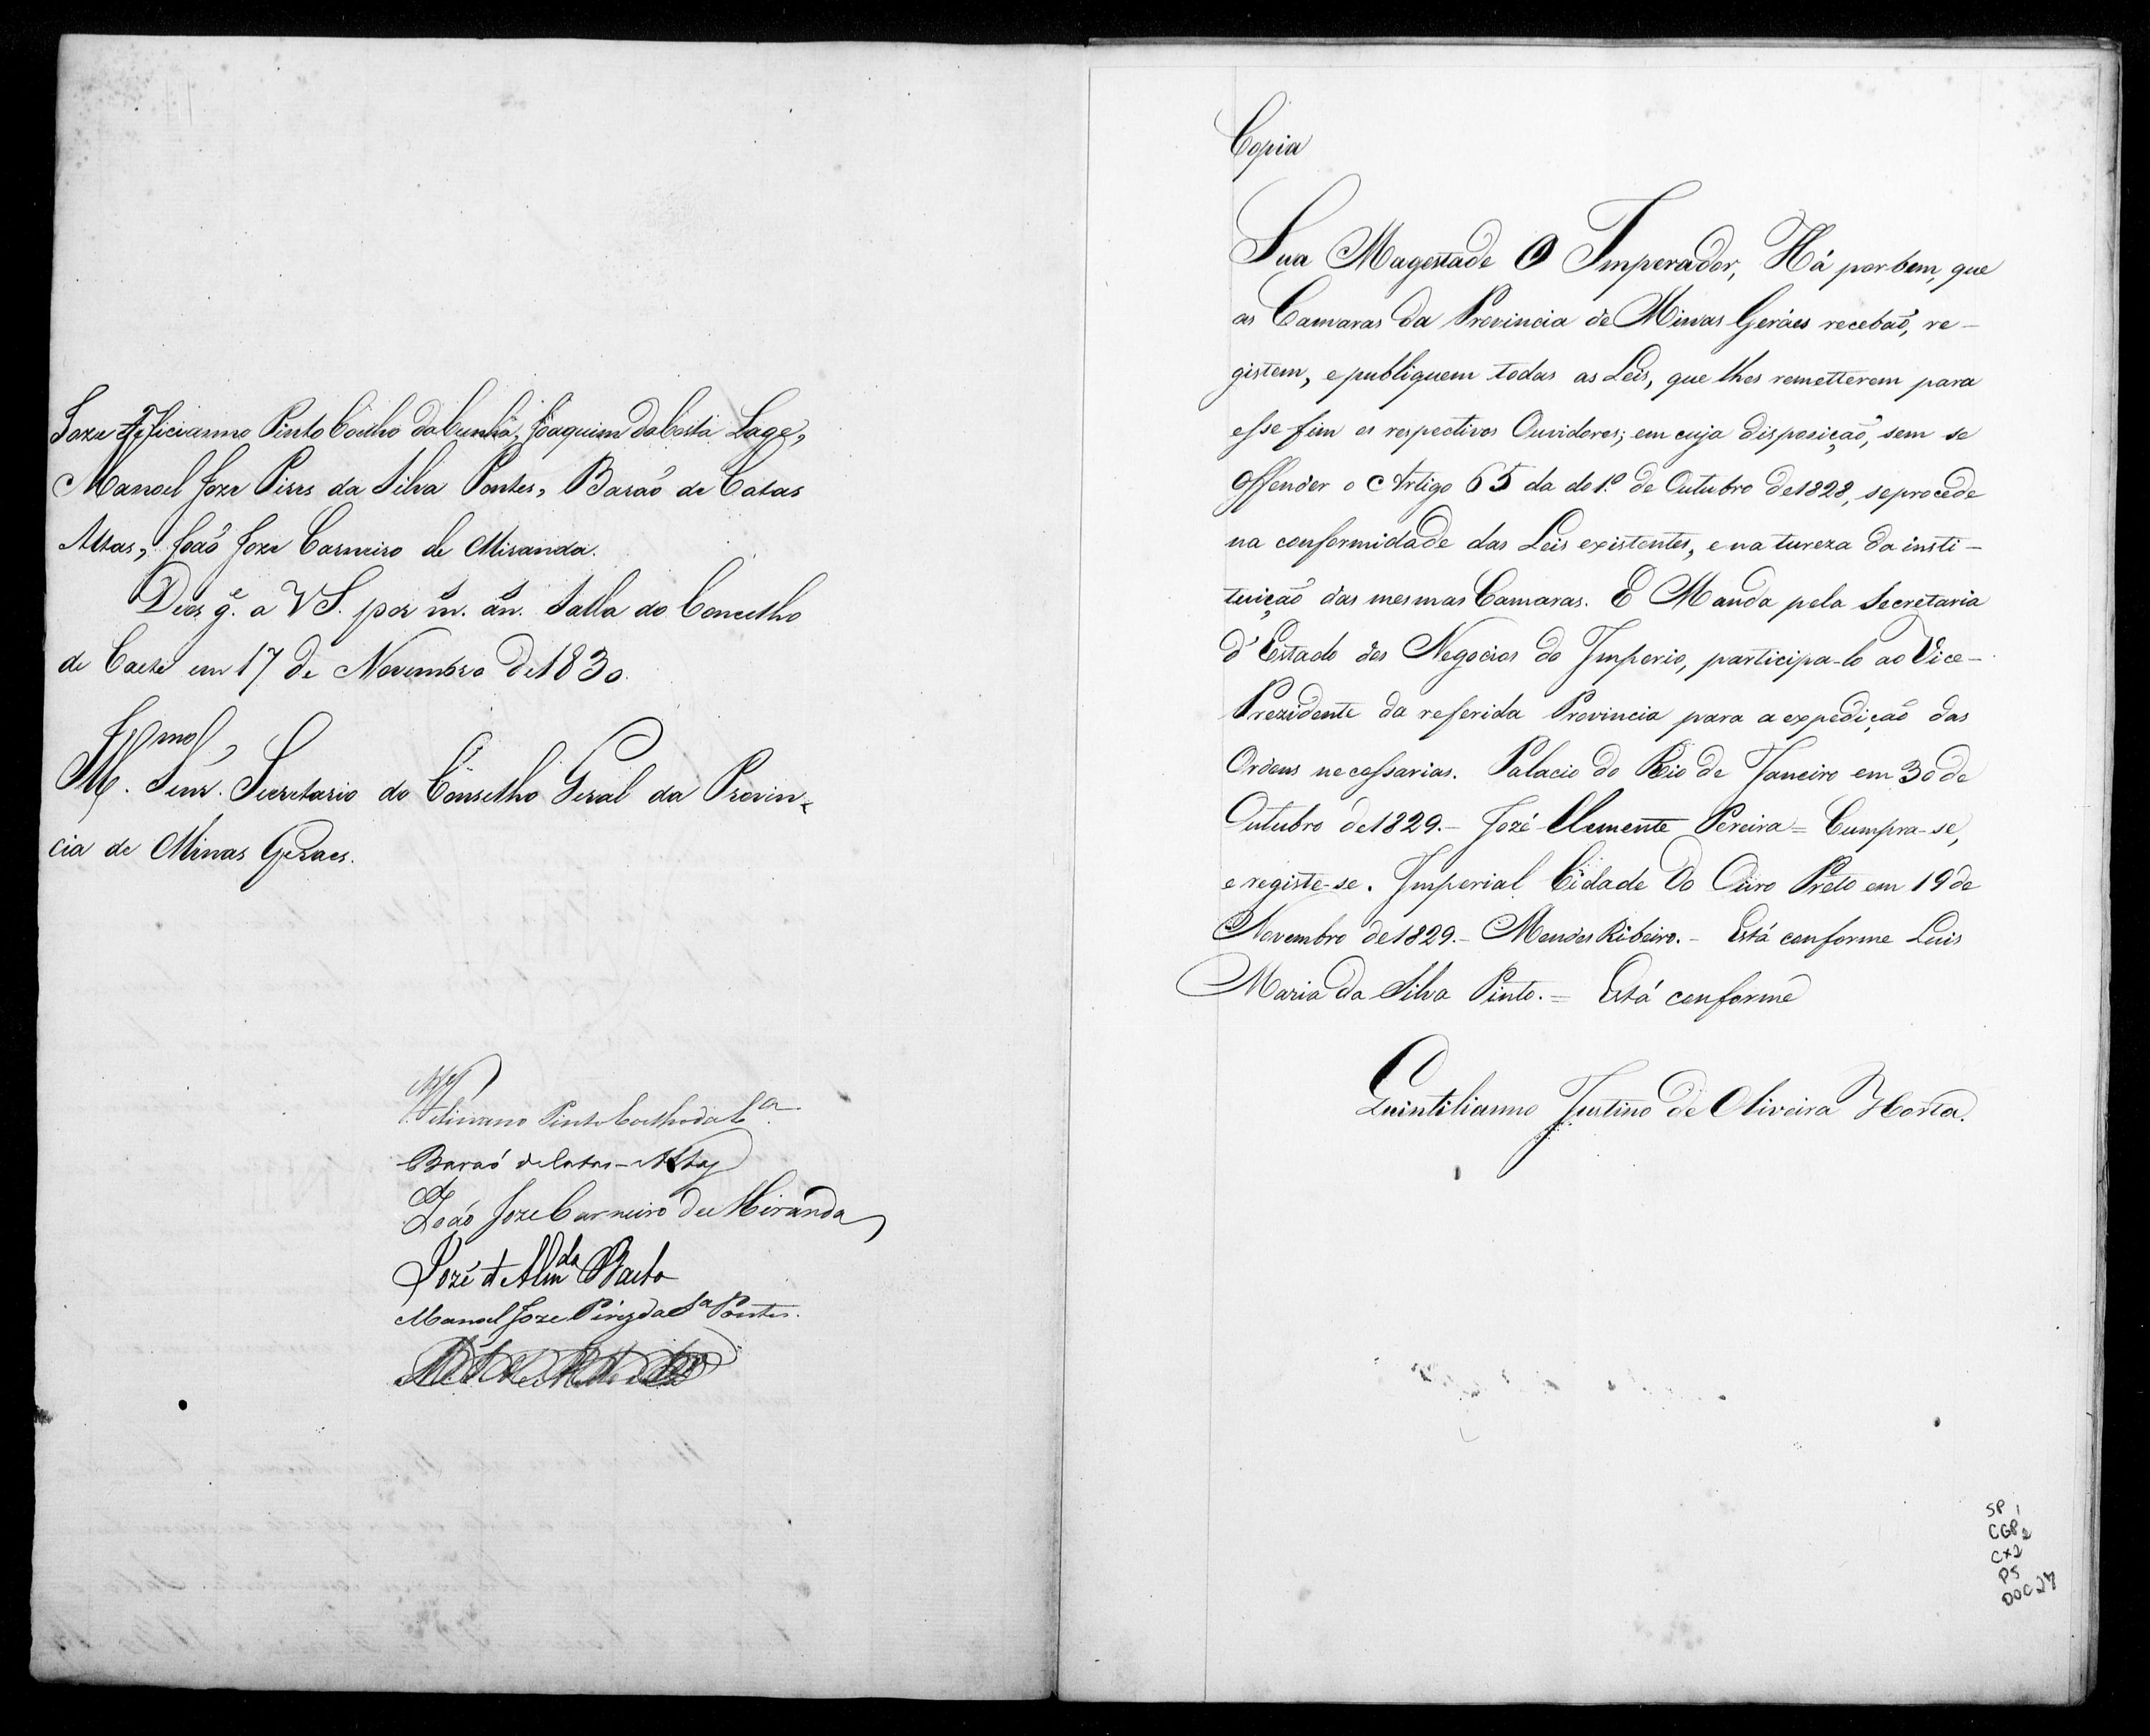 Joze Feliciano Pinto Coelho da Cunha, Joaquim da Costa Lage,
Manoel Joze Pires da Silva Pontes, Baraõ de Catas
Altas, Joaõ Joze Carneiro de Miranda.
Deos g.e a VS. por m.s an.s Salla do Concelho
de Caeté em 17 de Novembro de 1830.
Senr. Secretario do Conselho Geral da Provin-
cia de Minas Geraes.
Feliciano Pinto Coelho da C.a
Baraó de Catas-Altas
Joáo Joze Carneiro de Miranda
Jozé d'Alm.da
Manoel Joze Pires da S.a Pontes.
Copia
Sua Magestade O Imperador, Há por bem, que
as Camaras da Provincia de Minas Geráes recebaõ, re-
gistem, e publiquem todas as Leis, que lhes remetterem para
esse fim os respectivos Ouvidores; em cuja disposiçaõ, sem se
offender o Artigo 65 da do 1.o de Outubro de 1828, se procede
na conformidade das Leis existentes, e natureza da insti-
tuiçaõ das mesmas Camaras. E Manda pela Secretaria
d'Estado dos Negocios do Imperio, participa-lo ao Vice-
Prezidente da referida Provincia para a expediçaõ das
Ordens necessarias. Palacio do Rio de Janeiro em 30 de
Outubro de 1829.- Jozé Clemente Pereira = Cumpra-se,
e registe-se. Imperial Cidade do Ouro Preto em 19 de
Novembro de 1829.- Mendes Ribeiro.- Está conforme Luis
Maria da Silva Pinto.= Está conforme
Quintilianno Justino de Oliveira Horta.
SP 1
CGP 2
CX2
P5
DOC 27